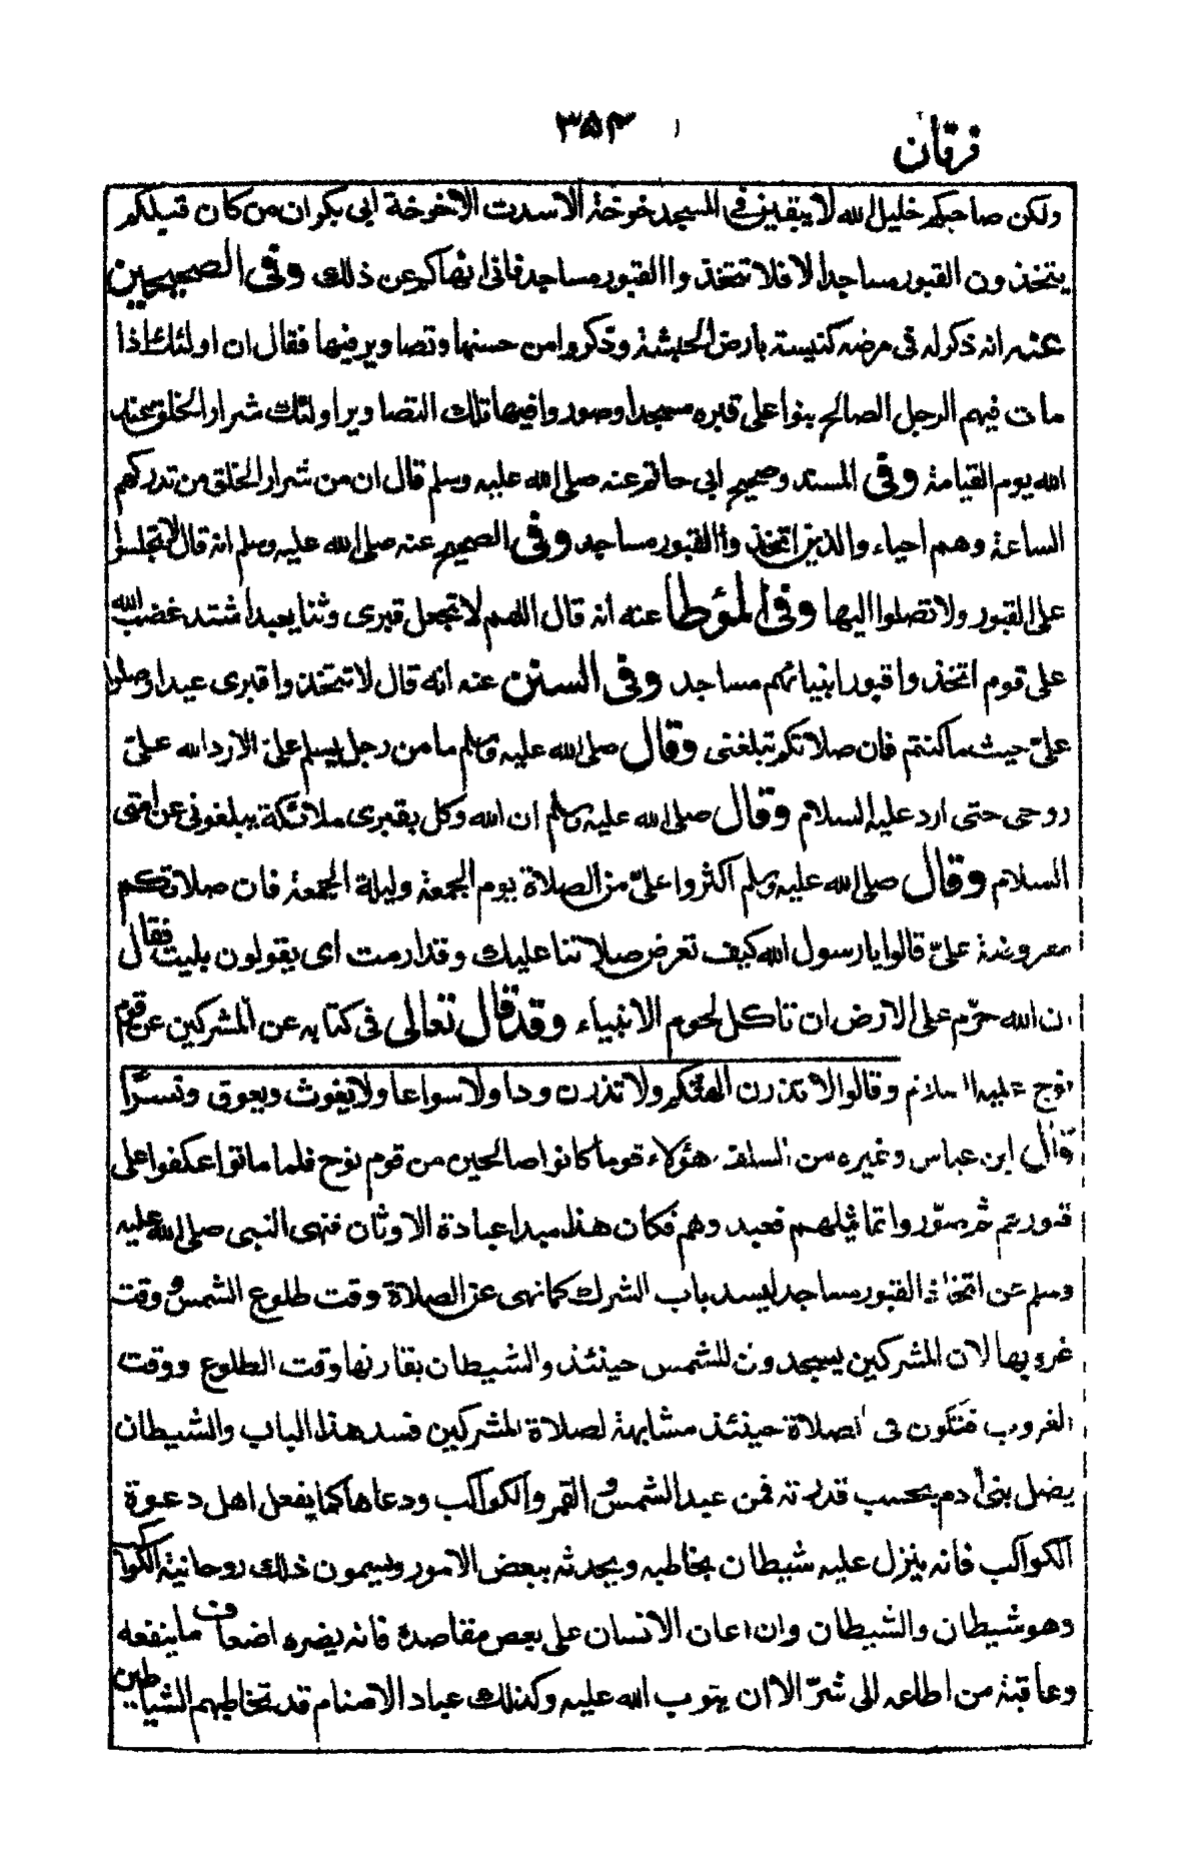 ۳۵۴
فرقان
ولكن صاحبكم خليل الله لا يبقين فى المسجد خوخة الا سدت الا خوخة ابى بكر ان من كان قبلكم
يتخذون القبور مساجد الا فلا تتخذوا القبور مساجد فانى انهاكم عن ذلك وفى الصحيحين
عنه انه ذكر له فى مرضه كنيسة بارض الحبشة وذكروا من حسنها وتصاوير فيها فقال ان اولئك اذا
مات فيهم الرجل الصالح بنوا على قبره مسجدا وصوروا فيها تلك التصاوير اولئك شرار الخلق عند
الله يوم القيامة وفى المسند وصحيح ابى حاتم عنه صلى الله عليه وسلم قال ان من شرار الخلق من تدركهم
الساعة وهم احياء والذين اتخذوا القبور مساجد وفى الصحيح عنه صلى الله عليه وسلم انه قال لا تجلسوا
على القبور ولا تصلوا اليها وفى المؤطا عنه انه قال اللهم لا تجعل قبرى وثنا يعبد اشتد غضب الله
على قوم اتخذوا قبور انبيائهم مساجد وفى السنن عنه انه قال لا تتخذوا قبرى عيدا وصلوا
علىّ حيث ما كنتم فان صلاتكم تبلغنى وقال صلى الله عليه وسلم ما من رجل يسلم علىّ الا رد الله علىّ
روحى حتى ارد عليه السلام وقال صلى الله عليه وسلم ان الله وكل بقبرى ملائكة يبلغونى عن امتى
السلام وقال صلى الله عليه وسلم اكثروا علىّ من الصلاة يوم الجمعة وليلة الجمعة فان صلاتكم
معروضة علىّ قالوا يا رسول الله كيف تعرض صلاتنا عليك وقد ارمت اى يقولون بليت فقال
ان الله حرّم على الارض ان تاكل لحوم الانبياء وقد قال تعالى فى كتابه عن المشركين عن قوم
نوح عليه السلام وقالوا لا تذرن الهتكم ولا تذرن ودا ولا سواعا ولا يغوث ويعوق ونسرًا
قال ابن عباس وغيره من السلف هؤلاء قوما كانوا صالحين من قوم نوح فلما ماتوا عكفوا على
قبورهم ثم صوّروا تماثيلهم فعبدوهم فكان هذا مبدا عبادة الاوثان فنهى النبى صلى الله عليه
وسلم عن اتخاذ القبور مساجد ليسد باب الشرك كما نهى عن الصلاة وقت طلوع الشمس ووقت
غروبها لان المشركين يسجدون للشمس حينئذ والشيطان يقارنها وقت الطلوع ووقت
الغروب فتكون فى الصلاة حينئذ مشابهة لصلاة المشركين فسد هذا الباب والشيطان
يضل بنى ادم بحسب قدرته فمن عبد الشمس والقمر والكواكب ودعاها كما يفعل اهل دعوة
الكواكب فانه ينزل عليه شيطان يخاطبه ويحدثه ببعض الامور ويسمون ذلك روحانية الكواكب
وهو شيطان والشيطان وان اعان الانسان على بعض مقاصده فانه يضره اضعاف ما ينفعه
وعاقبة من اطاعه الى شرّ الا ان يتوب الله عليه وكذلك عباد الاصنام قد تخاطبهم الشياطين